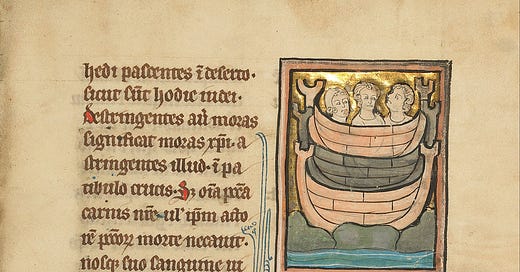 hedi pascentes ī deserto·
sicut sūt hodie iudei·
Destringentes aū moras
significat moras xp̄i· a
stringentes illud· ī pa
tibulo crucis· oīa
carnis nr̄e· ul' ip̄m acto
rē morte necauit·
nosq; suo sanguine ui